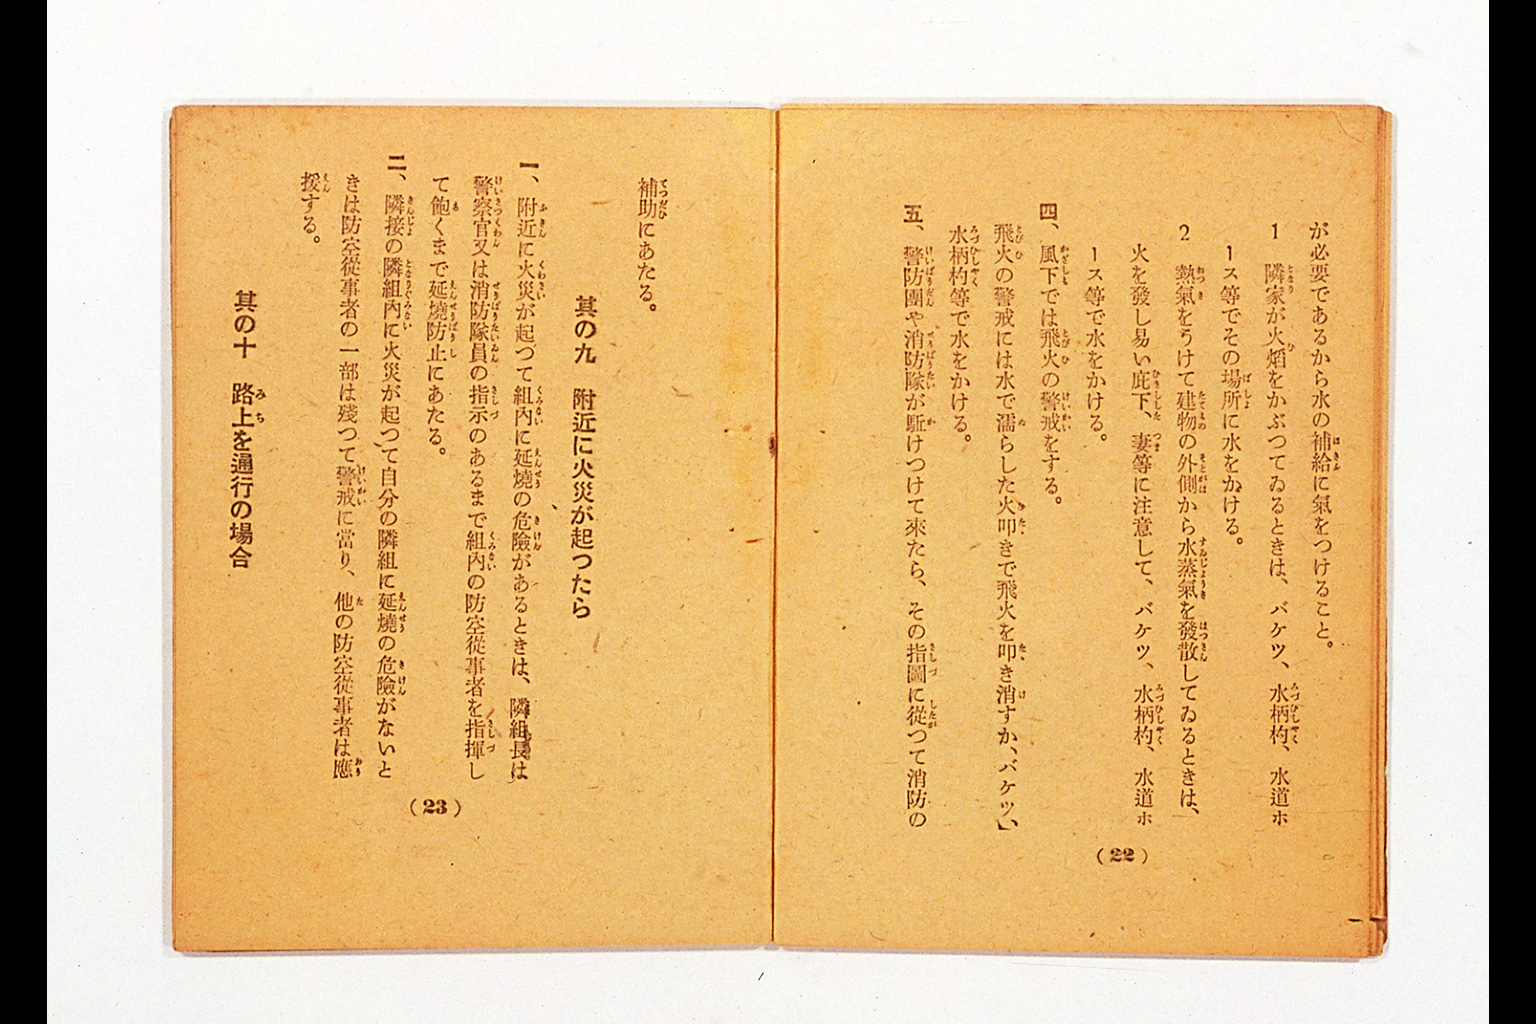 が必要であるから水の補給に氣をつけること。
1 隣家が火焰をかぶつてゐるときは、バケツ、水柄杓、水道ホ
ース等でその場所に水をかける。
2 熱氣をうけて建物の外側から水蒸氣を發散してゐるときは、
火を發し易い庇下、妻等に注意して、バケツ、水柄杓、水道ホ
ース等で水をかける。
四、風下では飛火の警戒をする。
飛火の警戒には水で濡らした火叩きで飛火を叩き消すか、バケツ、
水柄杓等で水をかける。
五、警防團や消防隊が駈けつけて來たら、その指圖に從つて消防の
(22)
補助にあたる。
其の九 附近に火災が起つたら
一、附近に火災が起つて組內に延燒の危險があるときは、隣組長は
警察官又は消防隊員の指示のあるまで組內の防空從事者を指揮し
て飽くまで延燒防止にあたる。
二、隣接の隣組內に火災が起つて自分の隣組に延燒の危險がないと
きは防空從事者の一部は殘つて警戒に當り、他の防空從事者は應
援する。
其の十 路上を通行の場合
(23)